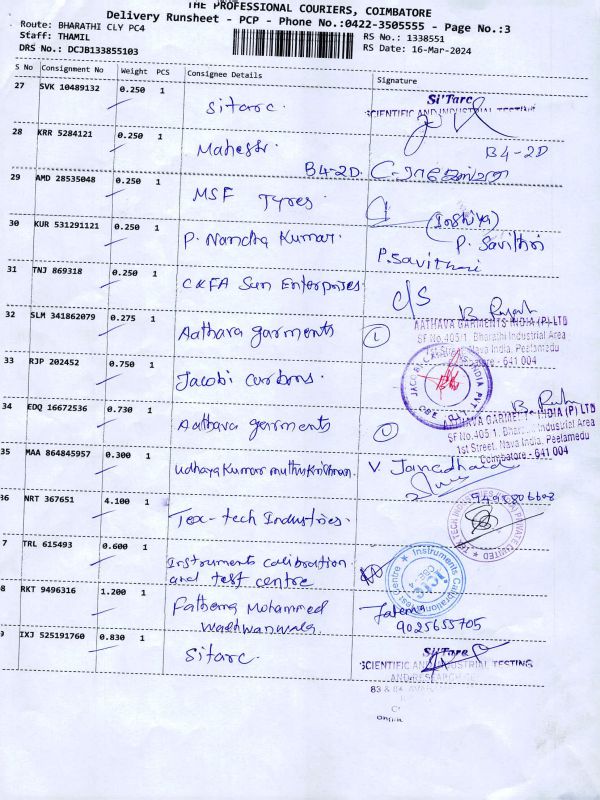 THE PROFESSIONAL COURIERS, COIMBATORE
Delivery Runsheet - PCP - Phone No.:0422-3505555 - Page No.:3
Route: BHARATHI CLY PC4
Staff: THAMIL
DRS No.: DCJB133855103
RS No.: 1338551
RS Date: 16-Mar-2024
S No Consignment No Weight PCS Consignee Details Signature
27 SVK 10489132 0.250 1 Sitarc. Si'Tarc
SCIENTIFIC AND INDUSTRIAL TESTING
28 KRR 5284121 0.250 1 Mahesh. B4-2D. B4-2D
29 AMD 28535048 0.250 1 MSF Tyres. (Inshiya)
30 KUR 531291121 0.250 1 P. Nandha Kumar. P. Savithri
P. Savithri
31 TNJ 869318 0.250 1 CKFA Sun Enterprises. C/S
32 SLM 341862079 0.275 1 Aathava garments
AATHAVA GARMENTS INDIA (P) LTD
SF No.405/1, Bharathi Industrial Area
Nava India, Peelamedu
641 004
33 RJP 202452 0.750 1 Jacobi carbons.
34 EDQ 16672536 0.730 1 Aathava garments
AATHAVA GARMENTS INDIA (P) LTD
SF No.405 1, Industrial Area
1st Street, Nava India, Peelamedu
Coimbatore - 641 004
35 MAA 864845957 0.300 1 Udhaya Kumar muthukrishnan.
36 NRT 367651 4.100 1 Tex-tech Industries.
7 TRL 615493 0.600 1 Instruments calibration and test centre
Instruments Calibration
Test Centre
8 RKT 9496316 1.200 1 Fathema Mohammed wadhwanwala
Fatema
9025655705
9 IXJ 525191760 0.830 1 Sitarc. Si'Tarc
SCIENTIFIC AND INDUSTRIAL TESTING